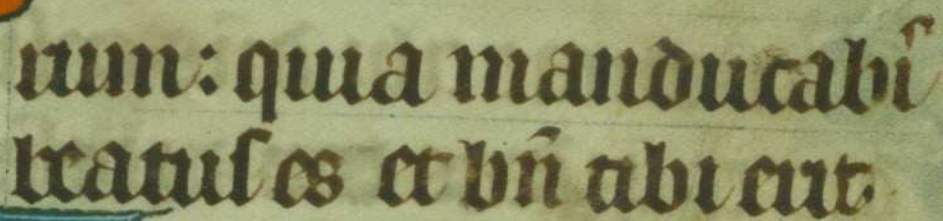 rum: quia manducabiſ
beatuſ es et bn̄ tibi erit.